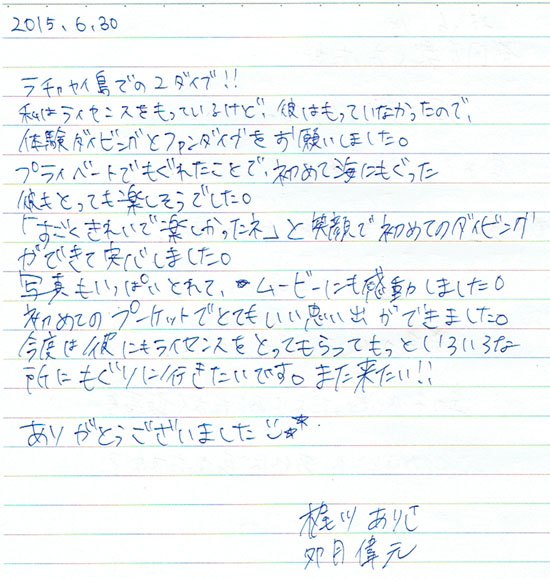 2015.6.30
ラチャヤイ島での2ダイブ!!
私はライセンスをもっているけど、彼はもっていなかったので、
体験ダイビングとファンダイブをお願いしました。
プライベートでもぐれたことで、初めて海にもぐった
彼もとっても楽しそうでした。
「すごくきれいで楽しかったネ」と笑顔で初めてのダイビング
ができて安心しました。
写真もいっぱいとれて、ムービーにも感動しました。
初めてのプーケットでとてもいい思い出ができました。
今度は彼にもライセンスをとってもらってもっといろいろな
所にもぐりに行きたいです。また来たい!!
ありがとうございました
梶川 ありさ
卯目 偉元